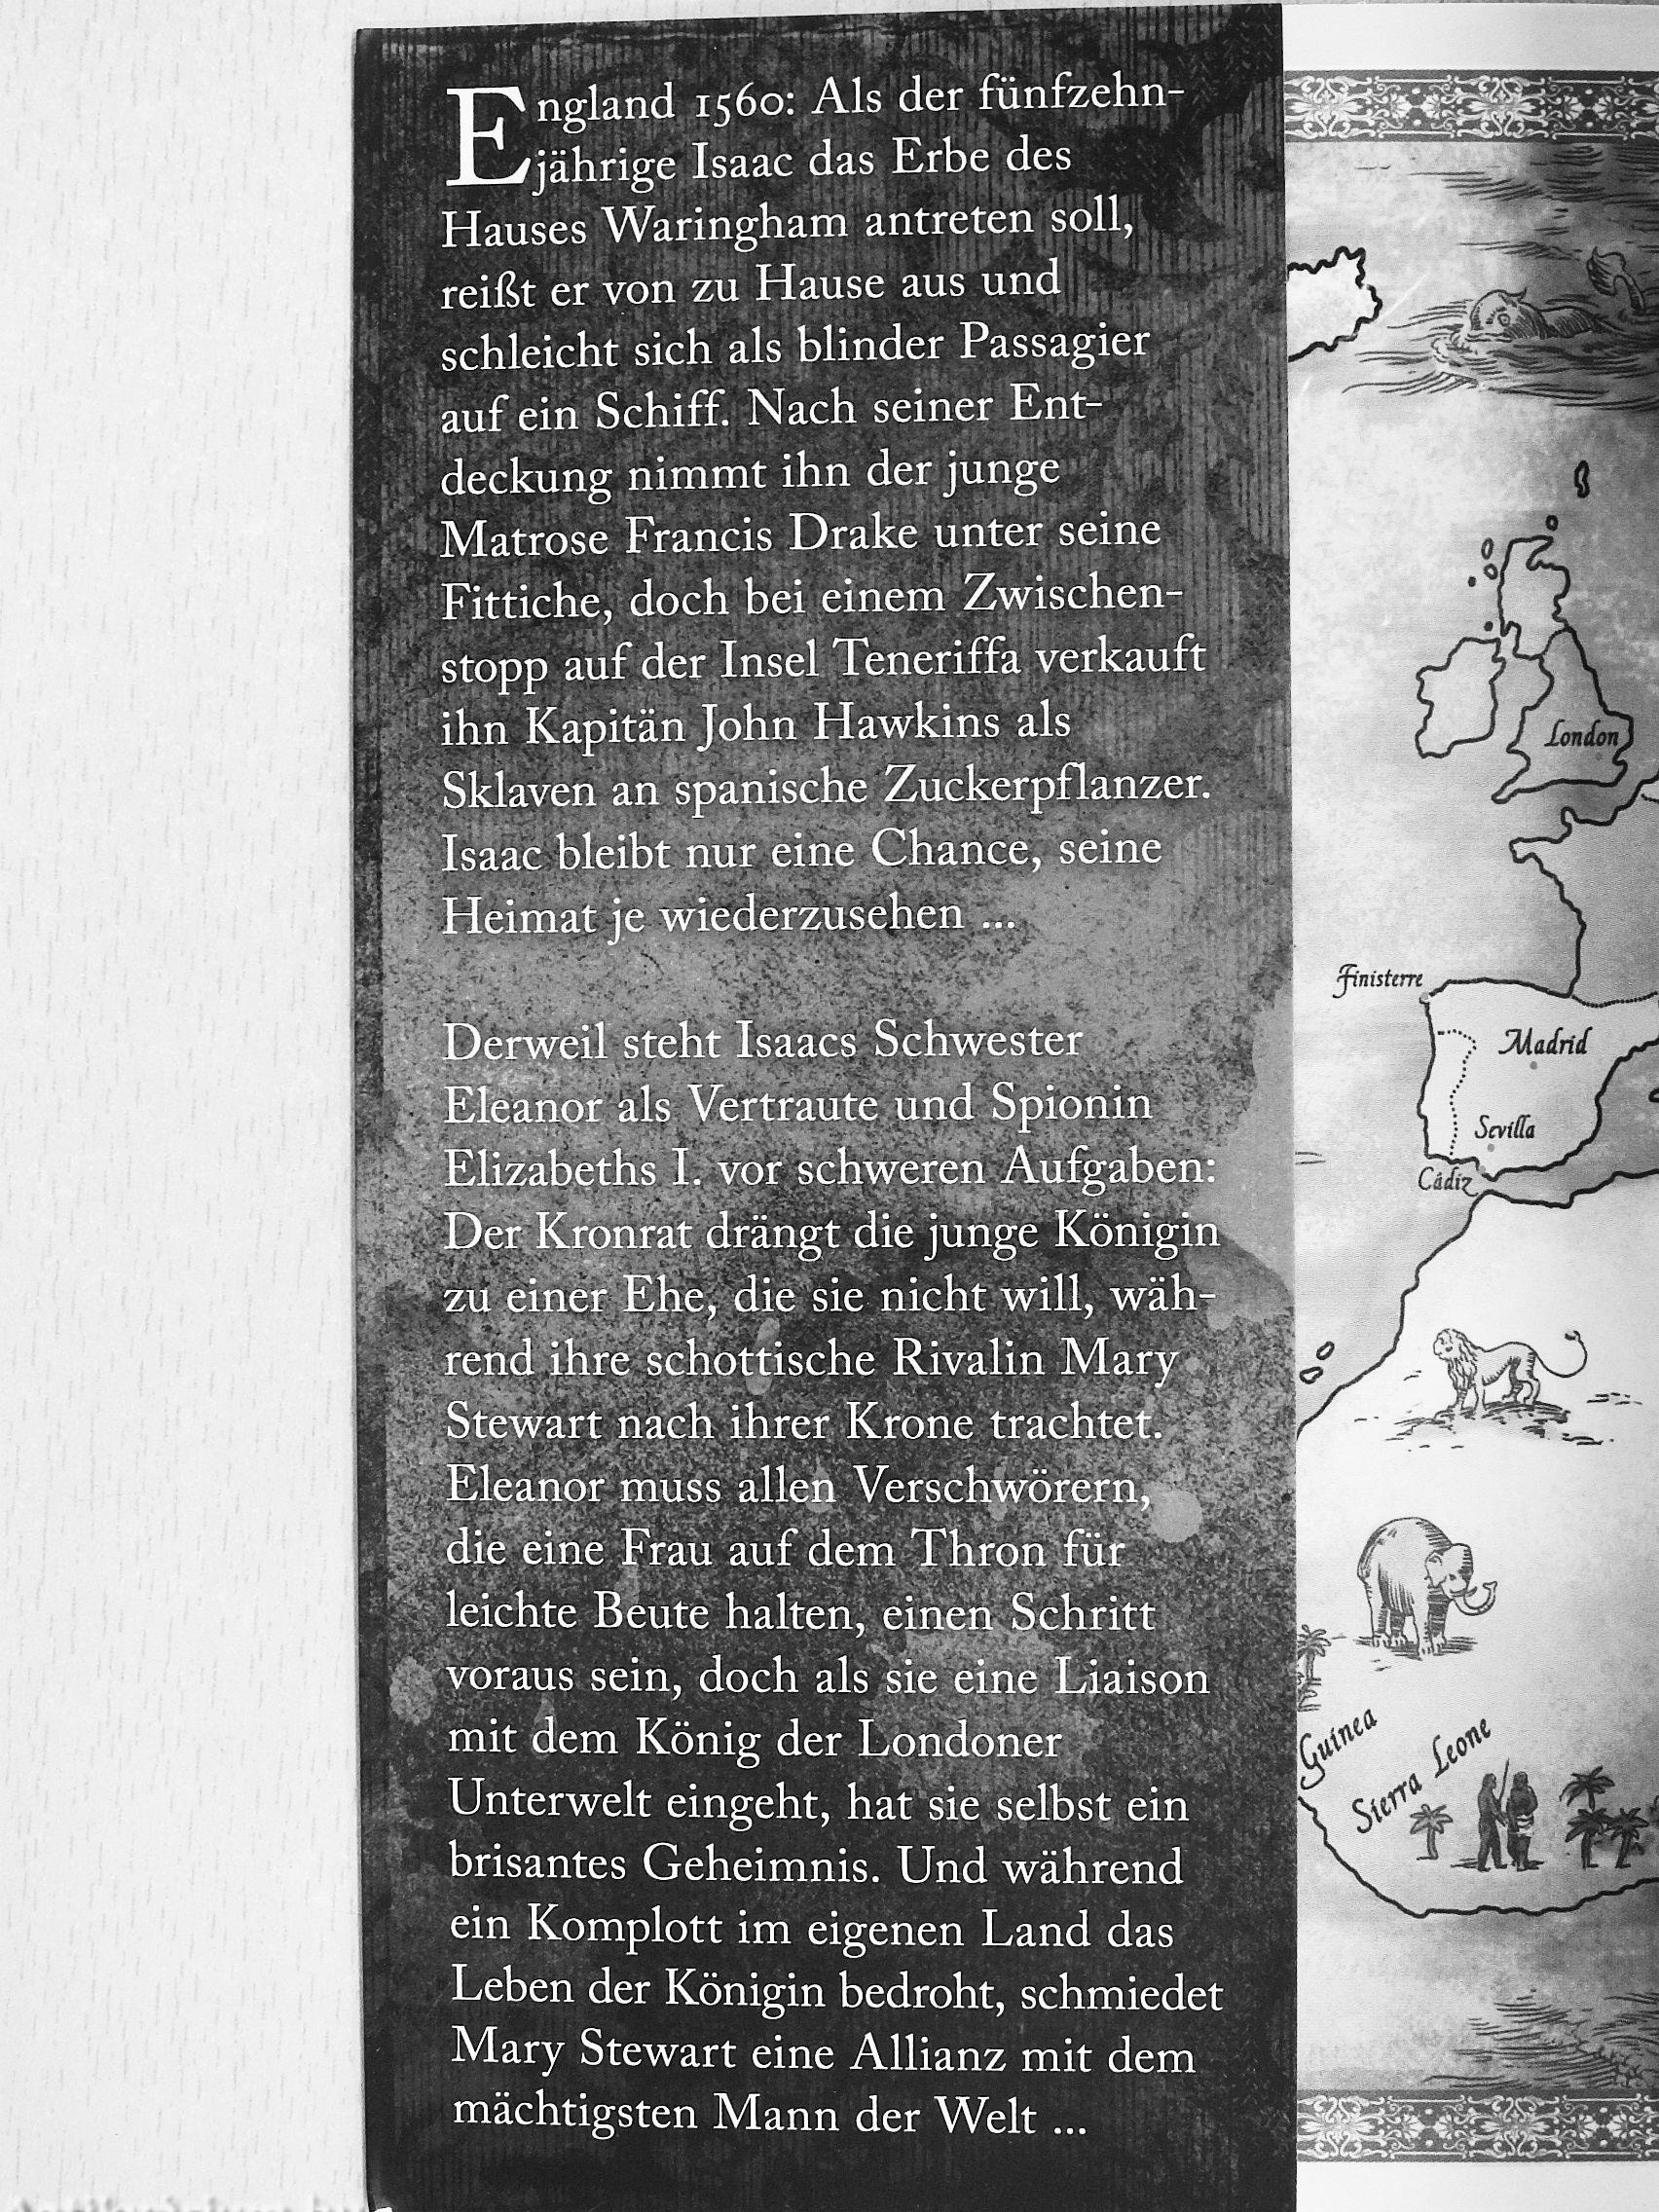 England 1560: Als der fünfzehn-
jährige Isaac das Erbe des
Hauses Waringham antreten soll,
reißt er von zu Hause aus und
schleicht sich als blinder Passagier
auf ein Schiff. Nach seiner Ent-
deckung nimmt ihn der junge
Matrose Francis Drake unter seine
Fittiche, doch bei einem Zwischen-
stopp auf der Insel Teneriffa verkauft
ihn Kapitän John Hawkins als
Sklaven an spanische Zuckerpflanzer.
Isaac bleibt nur eine Chance, seine
Heimat je wiederzusehen ...
Derweil steht Isaacs Schwester
Eleanor als Vertraute und Spionin
Elizabeths I. vor schweren Aufgaben:
Der Kronrat drängt die junge Königin
zu einer Ehe, die sie nicht will, wäh-
rend ihre schottische Rivalin Mary
Stewart nach ihrer Krone trachtet.
Eleanor muss allen Verschwörern,
die eine Frau auf dem Thron für
leichte Beute halten, einen Schritt
voraus sein, doch als sie eine Liaison
mit dem König der Londoner
Unterwelt eingeht, hat sie selbst ein
brisantes Geheimnis. Und während
ein Komplott im eigenen Land das
Leben der Königin bedroht, schmiedet
Mary Stewart eine Allianz mit dem
mächtigsten Mann der Welt ...
London
Finisterre
Madrid
Sevilla
Cádiz
Guinea
Sierra Leone